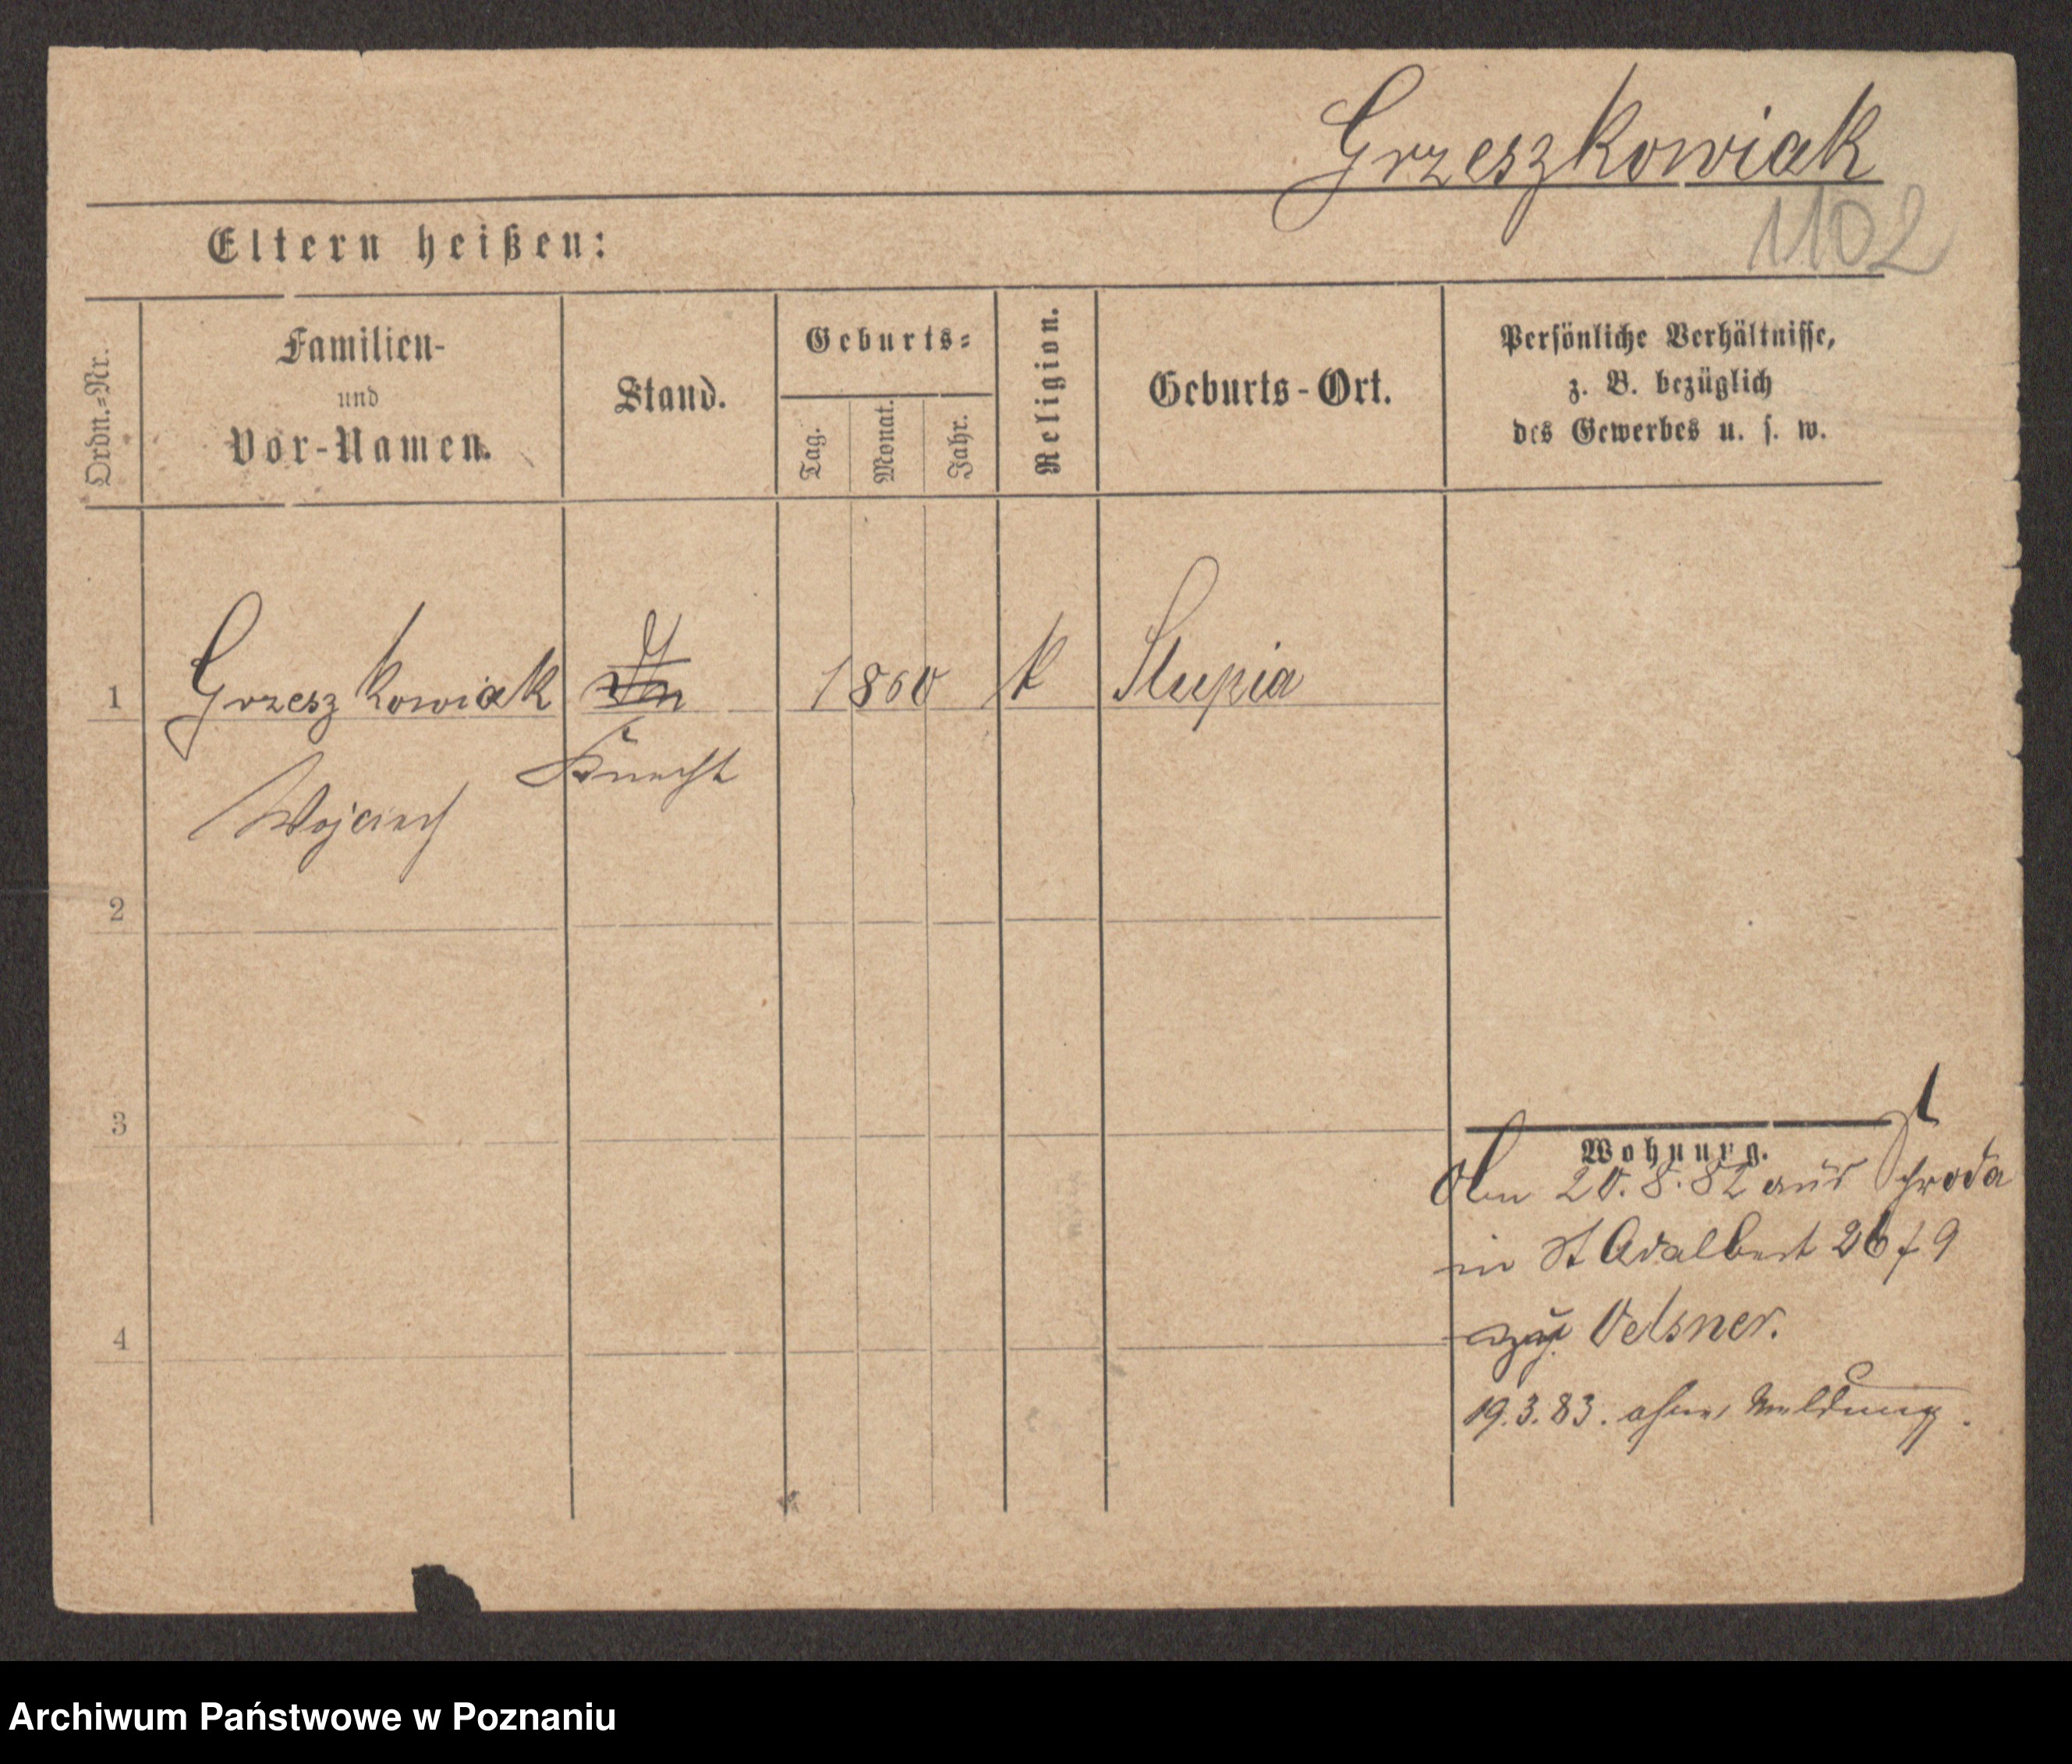 Grzeszkowiak
1102
Eltern heißen:
Ordn.=Nr.
Familien-
und
Vor-Namen.
Stand.
Geburts=
Tag.
Monat.
Jahr.
Religion.
Geburts-Ort.
Persönliche Verhältnisse,
z. B. bezüglich
des Gewerbes u. s. w.
1 Grzeszkowiak 1860 k Slupia
Knecht
Wojciech
2
3
4
Wohnung.
20.8.82 aus Schroda
in St Adalbert 26/9
Oelsner.
19.3.83. ohne Meldung.
Archiwum Państwowe w Poznaniu